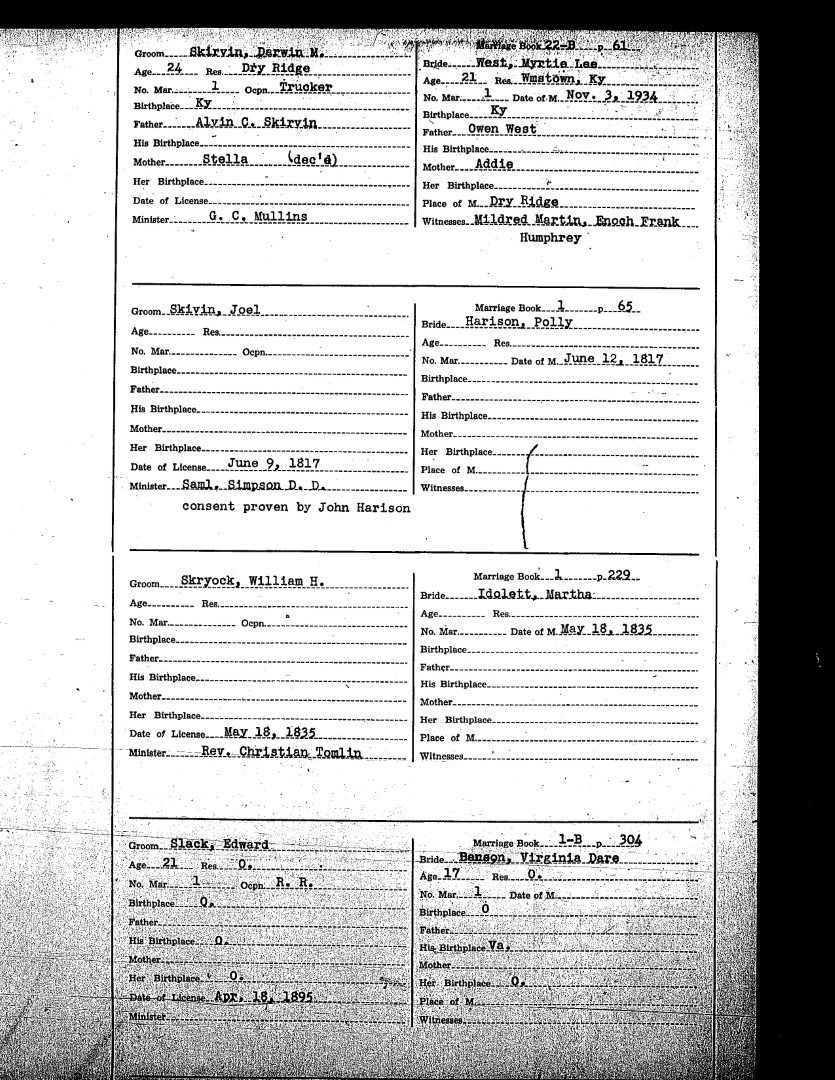 Groom Skirvin, Darwin M.
Age 24 Res. Dry Ridge
No. Mar. 1 Ocpn. Trucker
Birthplace Ky
Father Alvin C. Skirvin
His Birthplace
Mother Stella (dec'd)
Her Birthplace
Date of License
Minister G. C. Mullins
Marriage Book 22-B p. 61
Bride West, Myrtie Lee
Age 21 Res. Wmstown, Ky
No. Mar. 1 Date of M. Nov. 3, 1934
Birthplace Ky
Father Owen West
His Birthplace
Mother Addie
Her Birthplace
Place of M. Dry Ridge
Witnesses Mildred Martin, Enoch Frank
Humphrey
Groom Skivin, Joel
Age Res.
No. Mar. Ocpn.
Birthplace
Father
His Birthplace
Mother
Her Birthplace
Date of License June 9, 1817
Minister Saml. Simpson D. D.
consent proven by John Harison
Marriage Book 1 p. 65
Bride Harison, Polly
Age Res.
No. Mar. Date of M. June 12, 1817
Birthplace
Father
His Birthplace
Mother
Her Birthplace
Place of M.
Witnesses
Groom Skryock, William H.
Age Res.
No. Mar. Ocpn.
Birthplace
Father
His Birthplace
Mother
Her Birthplace
Date of License May 18, 1835
Minister Rev. Christian Tomlin
Marriage Book 1 p. 229
Bride Idolett, Martha
Age Res.
No. Mar. Date of M. May 18, 1835
Birthplace
Father
His Birthplace
Mother
Her Birthplace
Place of M.
Witnesses
Groom Slack, Edward
Age 21 Res. O.
No. Mar. 1 Ocpn. R. R.
Birthplace O.
Father
His Birthplace O.
Mother
Her Birthplace O.
Date of License Apr. 18, 1895
Minister
Marriage Book 1-B p. 304
Bride Benson, Virginia Dare
Age 17 Res. O.
No. Mar. 1 Date of M.
Birthplace O
Father
His Birthplace Va.
Mother
Her Birthplace O.
Place of M.
Witnesses